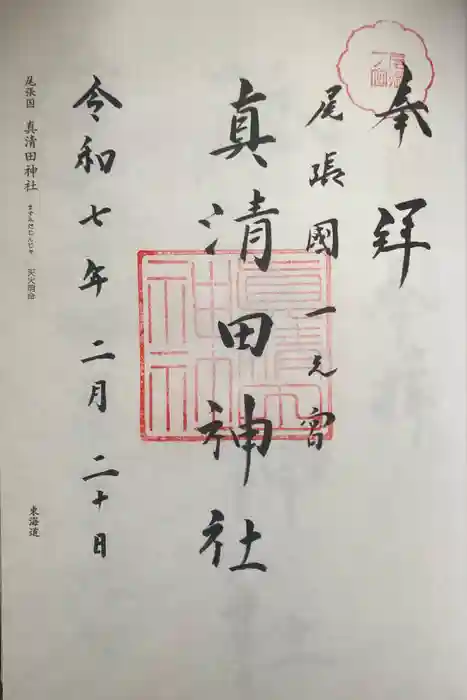 奉拝
尾張國一之宮
真清田神社
真清田
神社
令和七年 二月 二十日
尾張国 真清田神社 ますみだじんじゃ 天火明命
東海道